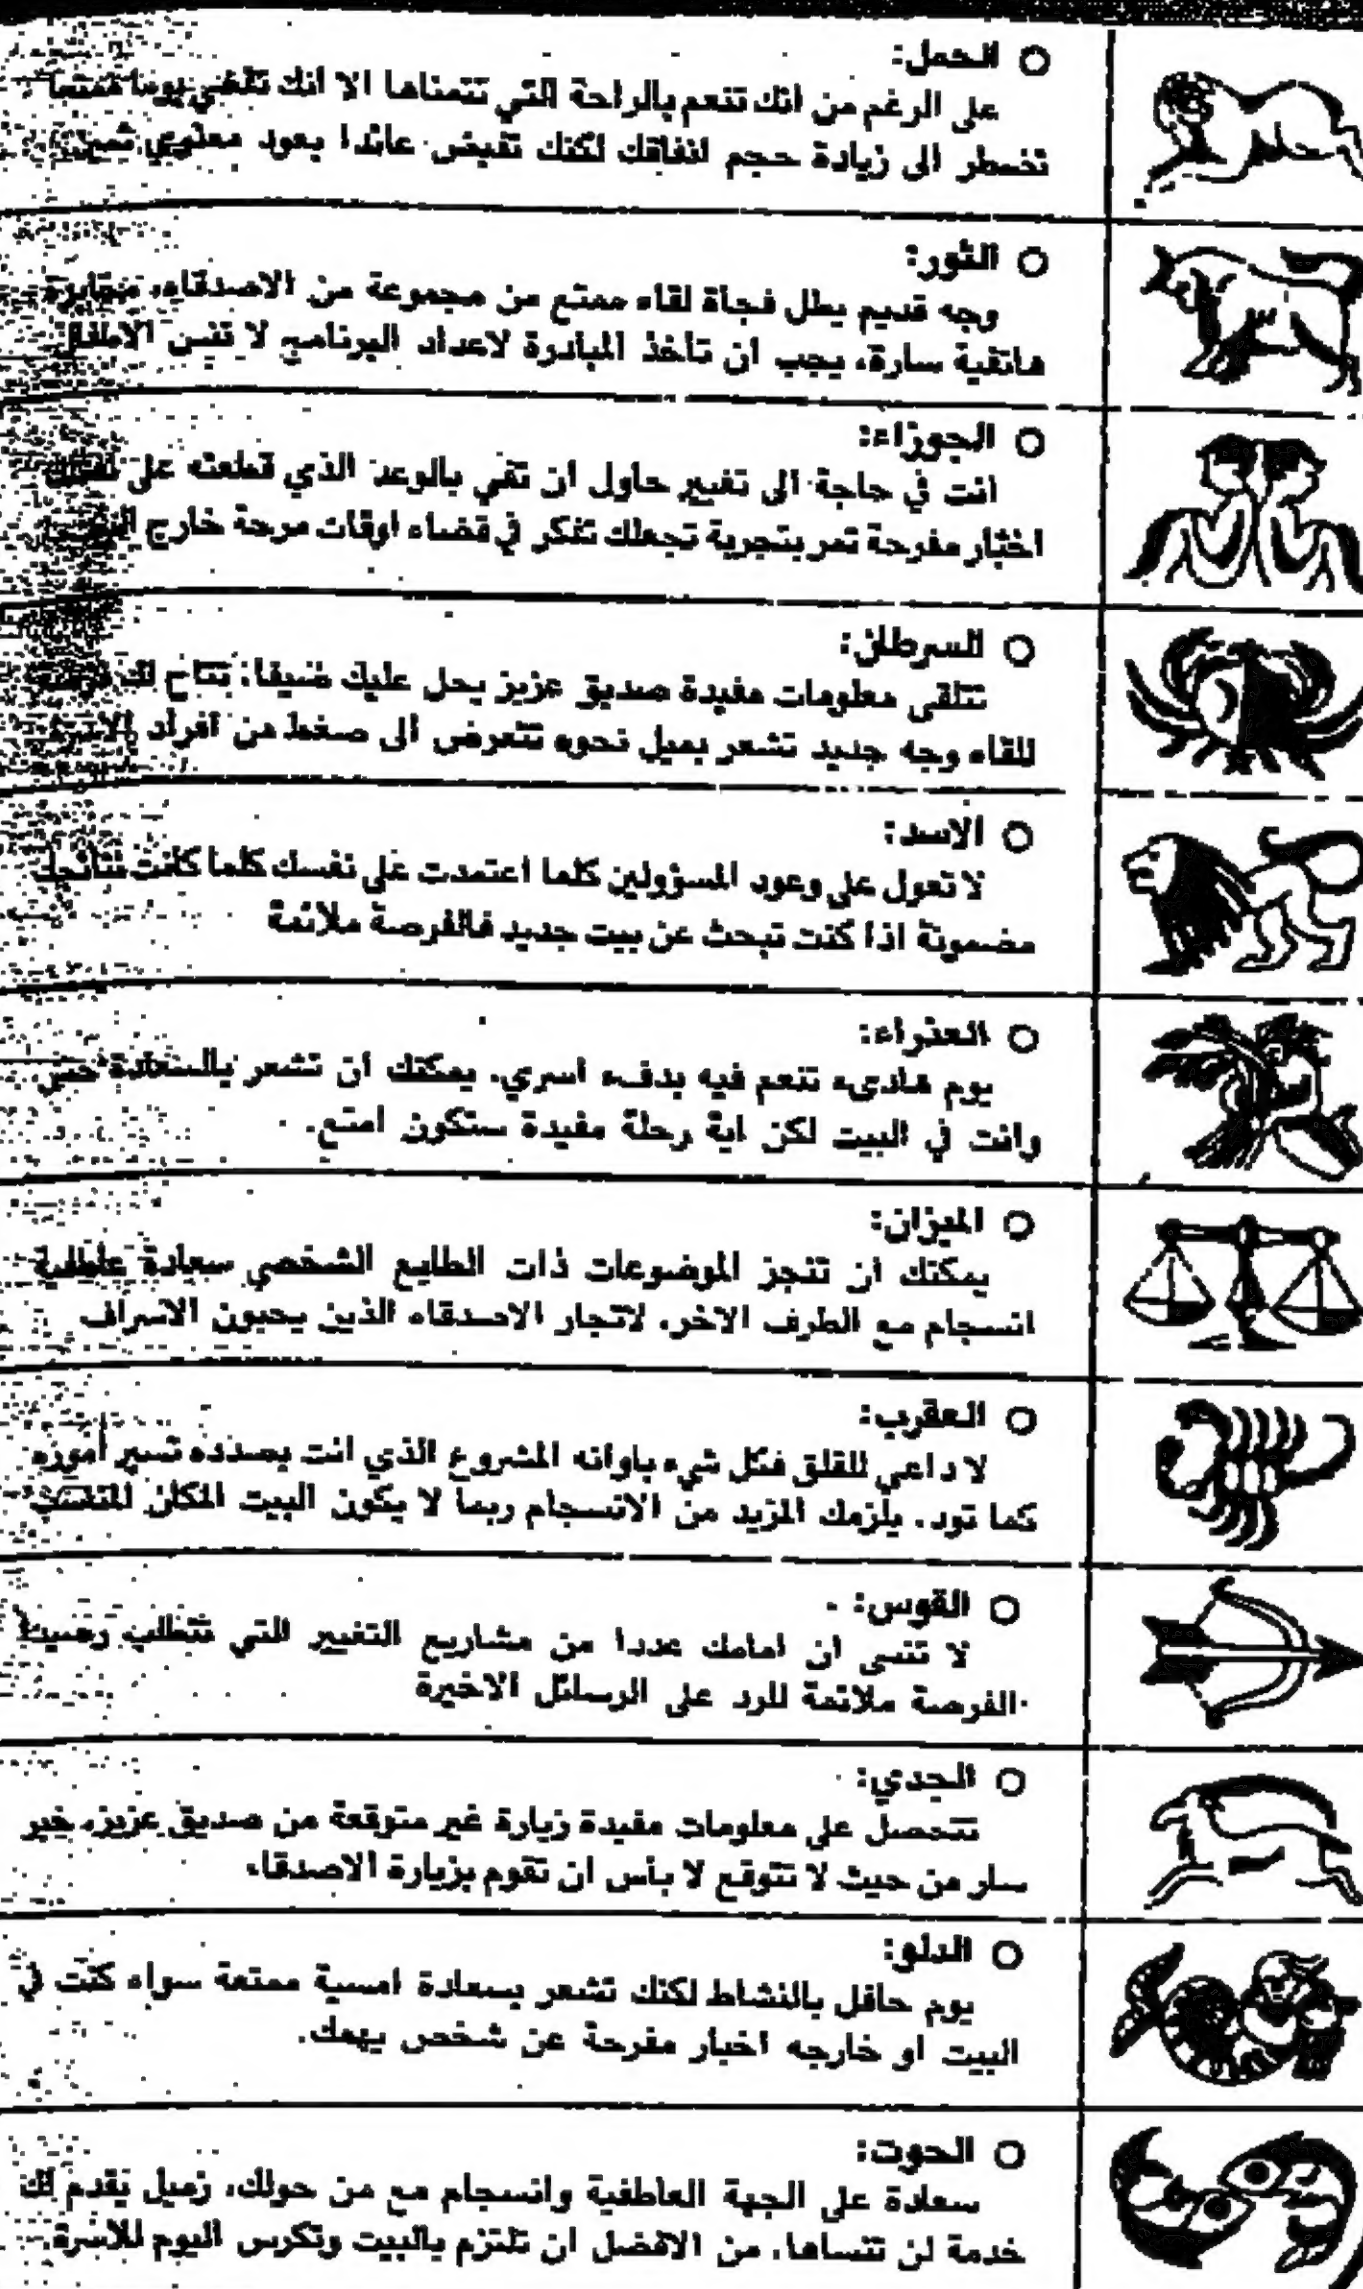 ○ الحمل:
على الرغم من انك تنعم بالراحة التي تتمناها الا انك تقضي يوما ممتعا
تضطر الى زيادة حجم انفاقك لكنك تقبض عائدا يعود معنوي
○ الثور:
وجه قديم يطل فجأة لقاء ممتع من مجموعة من الاصدقاء،
هاتفية سارة، يجب ان تأخذ المبادرة لاعداد البرنامج لا تنس الاطفال
○ الجوزاء:
انت في حاجة الى تغيير حاول ان تفي بالوعد الذي قطعته على
اخبار مفرحة تمر بتجربة تجعلك تفكر في قضاء اوقات مرحة خارج
○ السرطان:
تتلقى معلومات مفيدة صديق عزيز يحل عليك ضيفا، تتاح لك
للقاء وجه جديد تشعر بميل نحوه تتعرض الى ضغط من افراد
○ الاسد:
لا تعول على وعود المسؤولين كلما اعتمدت على نفسك كلما كانت نتائجك
مضمونة اذا كنت تبحث عن بيت جديد فالفرصة ملائمة
○ العذراء:
يوم هادىء تنعم فيه بدفء اسري. يمكنك ان تشعر بالسعادة حتى
وانت في البيت لكن اية رحلة مفيدة ستكون امتع.
○ الميزان:
يمكنك ان تنجز الموضوعات ذات الطابع الشخصي سعادة عاطفية
انسجام مع الطرف الاخر. لاتجار الاصدقاء الذين يحبون الاسراف
○ العقرب:
لا داعي للقلق فكل شيء باوانه المشروع الذي انت بصدده تسير أموره
كما تود. يلزمك المزيد من الانسجام ربما لا يكون البيت المكان المناسب
○ القوس:
لا تنسى ان امامك عددا من مشاريع التغيير التي تتطلب
الفرصة ملائمة للرد على الرسائل الاخيرة
○ الجدي:
تتحصل على معلومات مفيدة زيارة غير متوقعة من صديق عزيز. خبر
سار من حيث لا تتوقع لا بأس ان تقوم بزيارة الاصدقاء
○ الدلو:
يوم حافل بالنشاط لكنك تشعر بسعادة امسية ممتعة سواء كنت في
البيت او خارجه اخبار مفرحة عن شخص يهمك.
○ الحوت:
سعادة على الجبهة العاطفية وانسجام مع من حولك، زميل يقدم لك
خدمة لن تنساها. من الافضل ان تلتزم بالبيت وتكرس اليوم للاسرة.